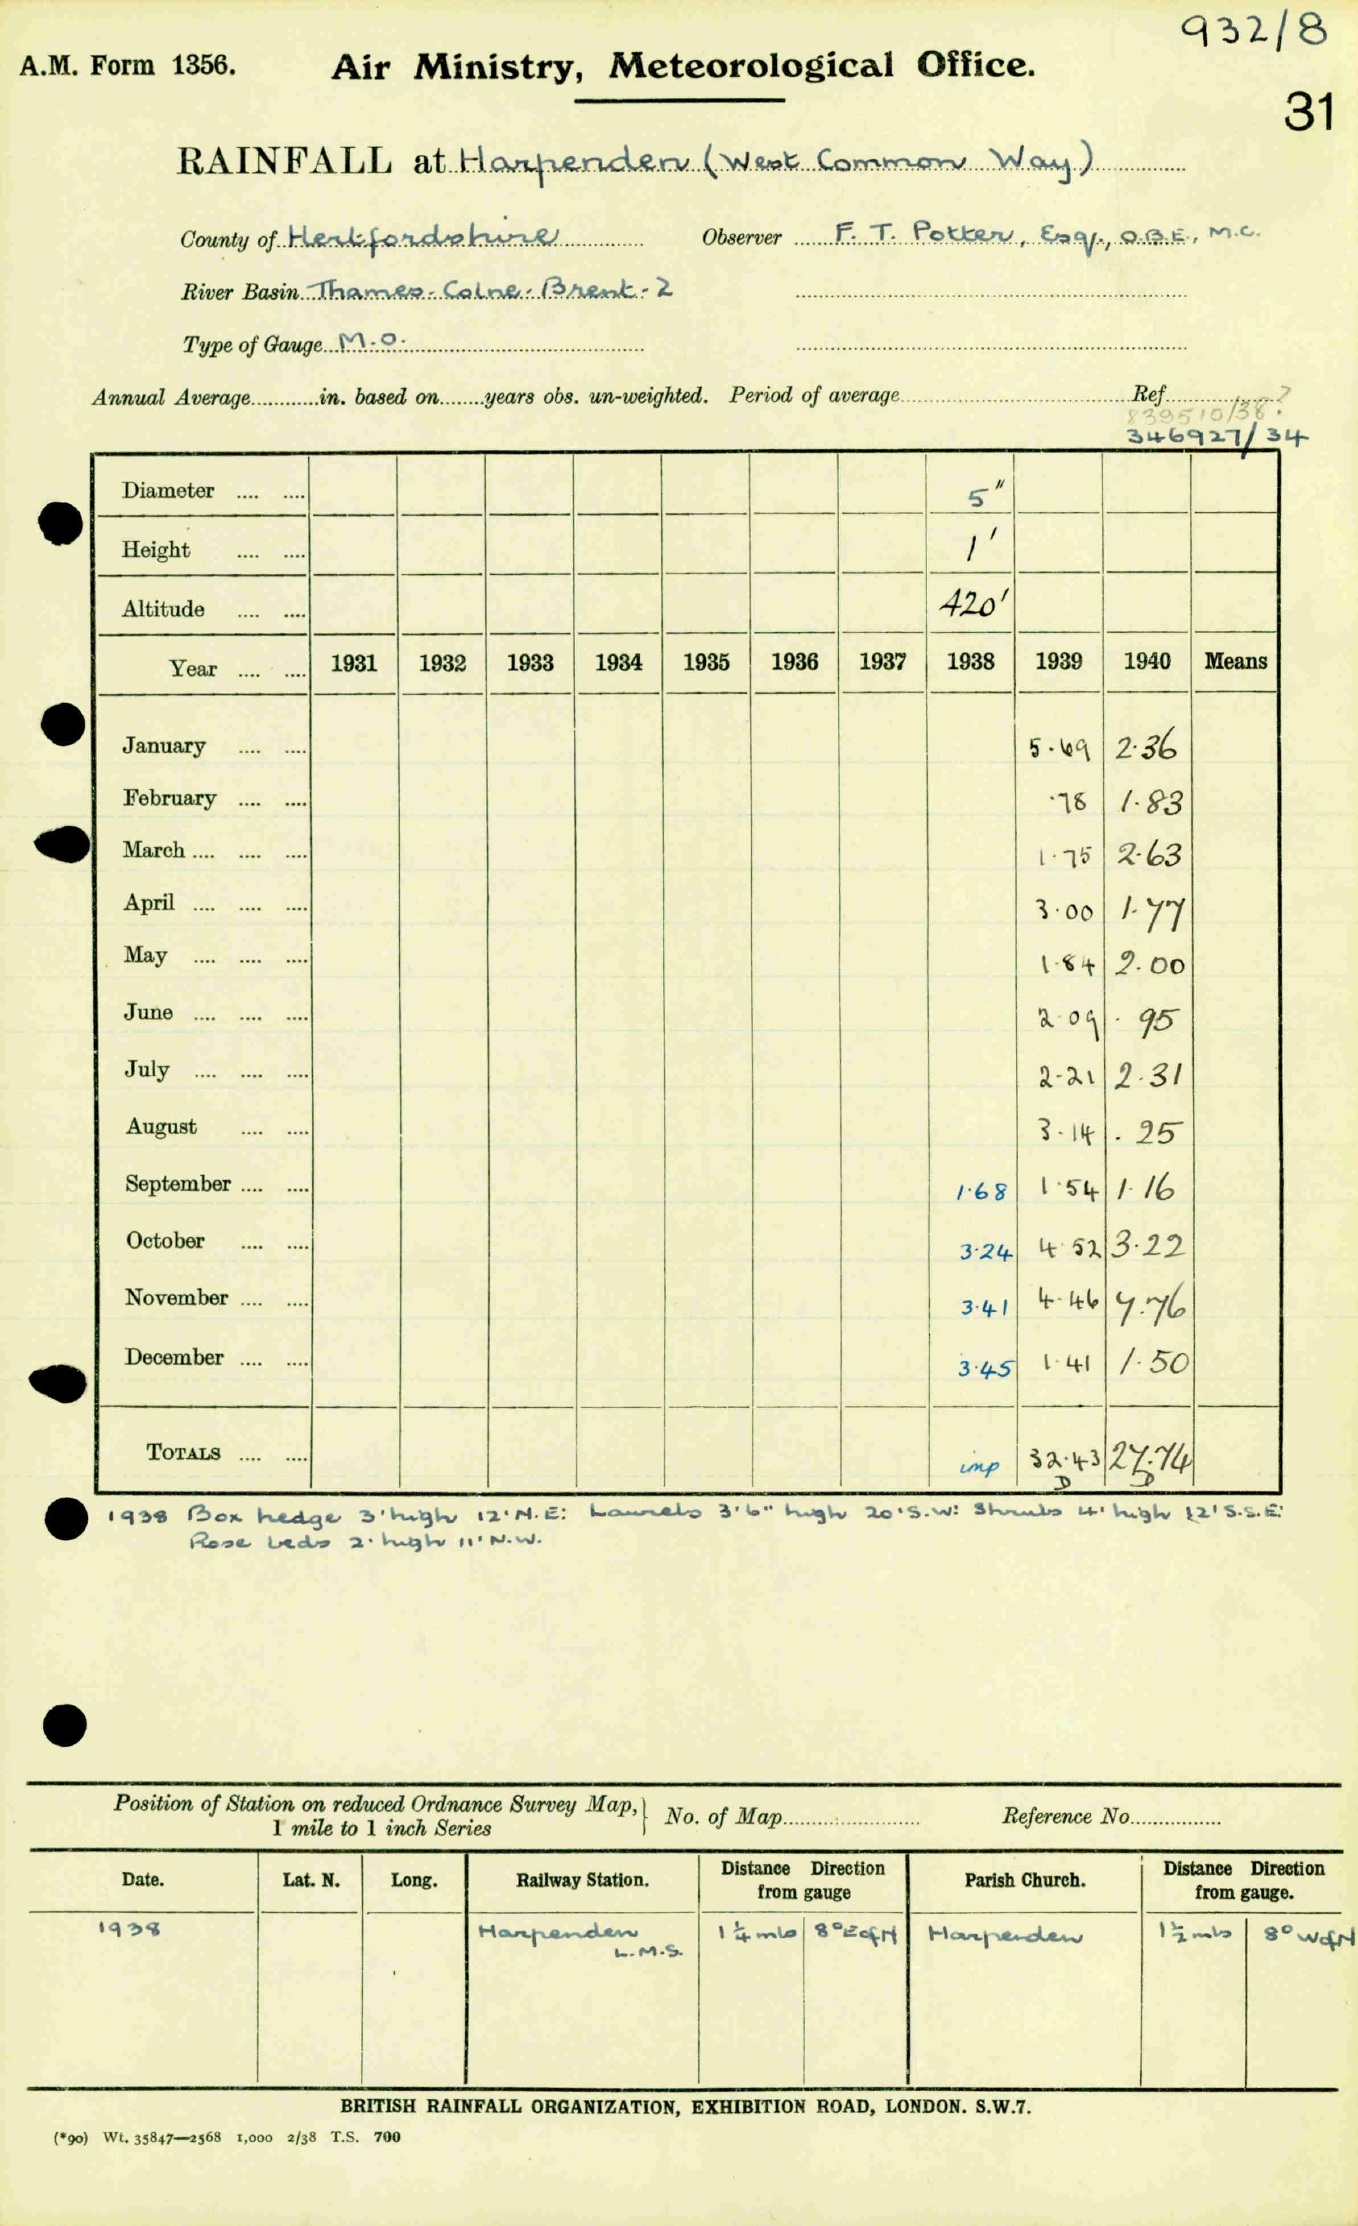 932/8
A.M. Form 1356. Air Ministry, Meteorological Office.
31
RAINFALL at Harpenden (West Common Way)
County of Hertfordshire Observer F. T. Potter, Esq., O.B.E., M.C.
River Basin Thames-Colne-Brent-2
Type of Gauge M.O.
Annual Average............in. based on........years obs. un-weighted. Period of average Ref.
839510/38?
346927/34
Diameter .... .... 5"
Height .... .... 1'
Altitude .... .... 420'
Year .... .... 1931 1932 1933 1934 1935 1936 1937 1938 1939 1940 Means
January .... .... 5.69 2.36
February .... .... .78 1.83
March .... .... .... 1.75 2.63
April .... .... .... 3.00 1.77
May .... .... .... 1.84 2.00
June .... .... .... 2.09 .95
July .... .... .... 2.21 2.31
August .... .... 3.14 .25
September .... .... 1.68 1.54 1.16
October .... .... 3.24 4.52 3.22
November .... .... 3.41 4.46 7.76
December .... .... 3.45 1.41 1.50
TOTALS .... .... imp 32.43 27.74
D D
1938 Box hedge 3' high 12' N.E: Laurels 3'6" high 20' S.W: Shrubs 4' high 12' S.S.E:
Rose beds 2' high 11' N.W.
Position of Station on reduced Ordnance Survey Map, No. of Map Reference No.
1 mile to 1 inch Series
Date. Lat. N. Long. Railway Station. Distance Direction from gauge Parish Church. Distance Direction from gauge.
1938 Harpenden 1¼ mls 8° E of N Harpenden 1½ mls 8° W of N
L.M.S.
BRITISH RAINFALL ORGANIZATION, EXHIBITION ROAD, LONDON. S.W.7.
(*90) Wt. 35847—2568 1,000 2/38 T.S. 700